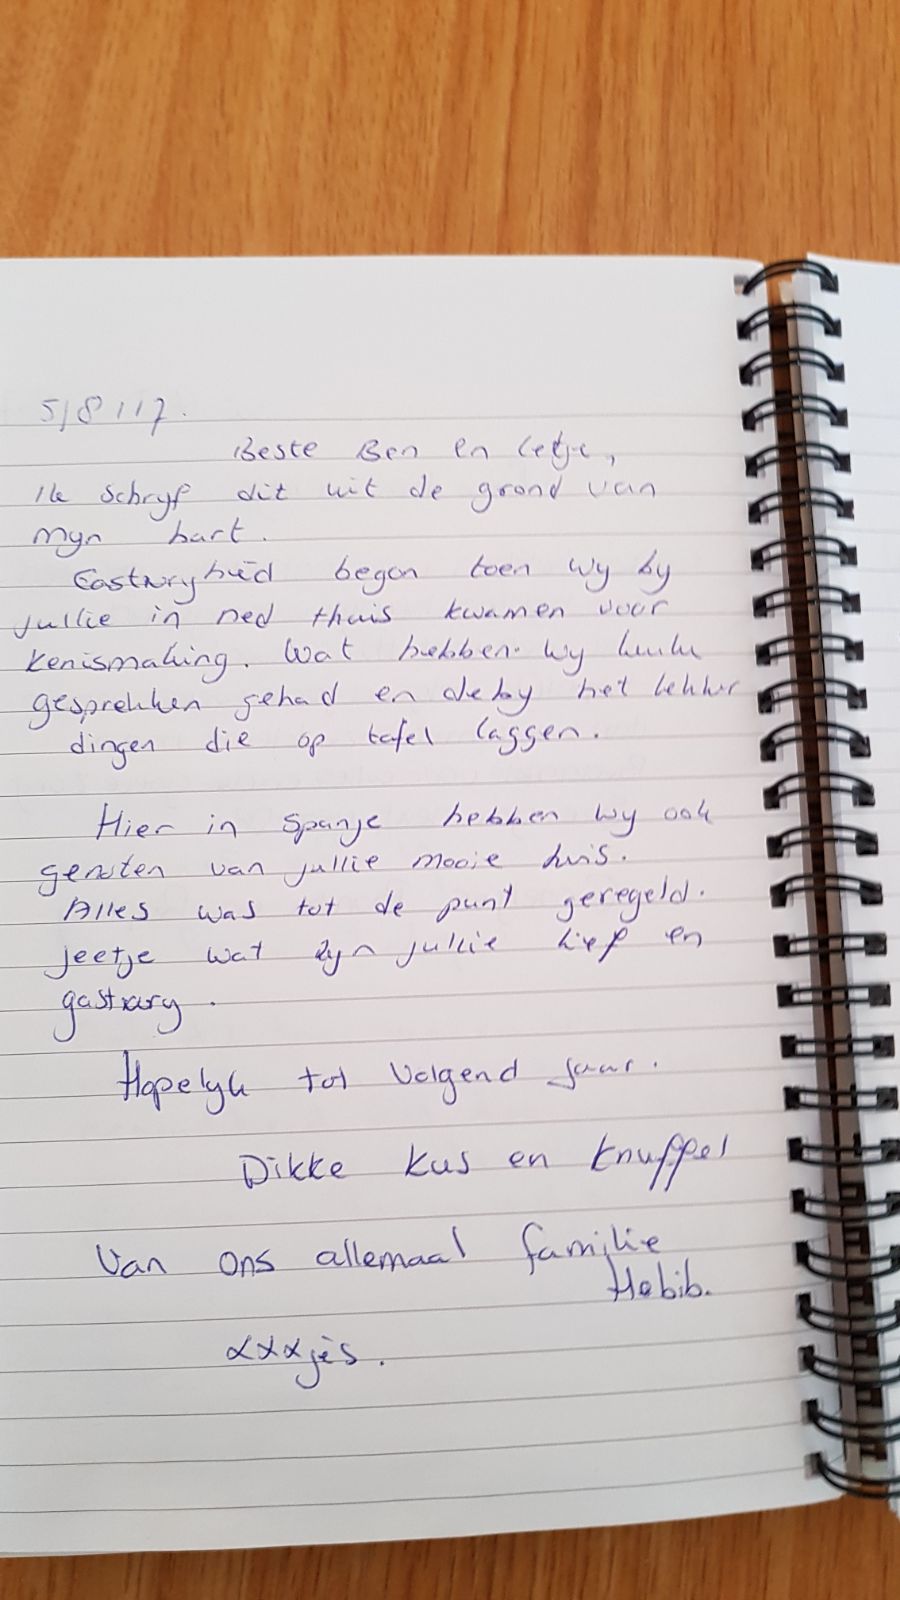 5/8/17.
Beste Ben en Letje,
Ik schryf dit uit de grond van
myn hart.
Gastvryheid began toen wy by
jullie in ned thuis kwamen voor
kenismaking. Wat hebben wy leuke
gesprekken gehad en deby het lekker
dingen die op tafel laggen.
Hier in Spanje hebben wy ook
genoten van jullie mooie huis.
Alles was tot de punt geregeld.
jeetje wat zyn jullie lief en
gastvry.
Hopelyk tot volgend jaar.
Dikke kus en knuffel
Van ons allemaal familie
Habib.
xxxjes.